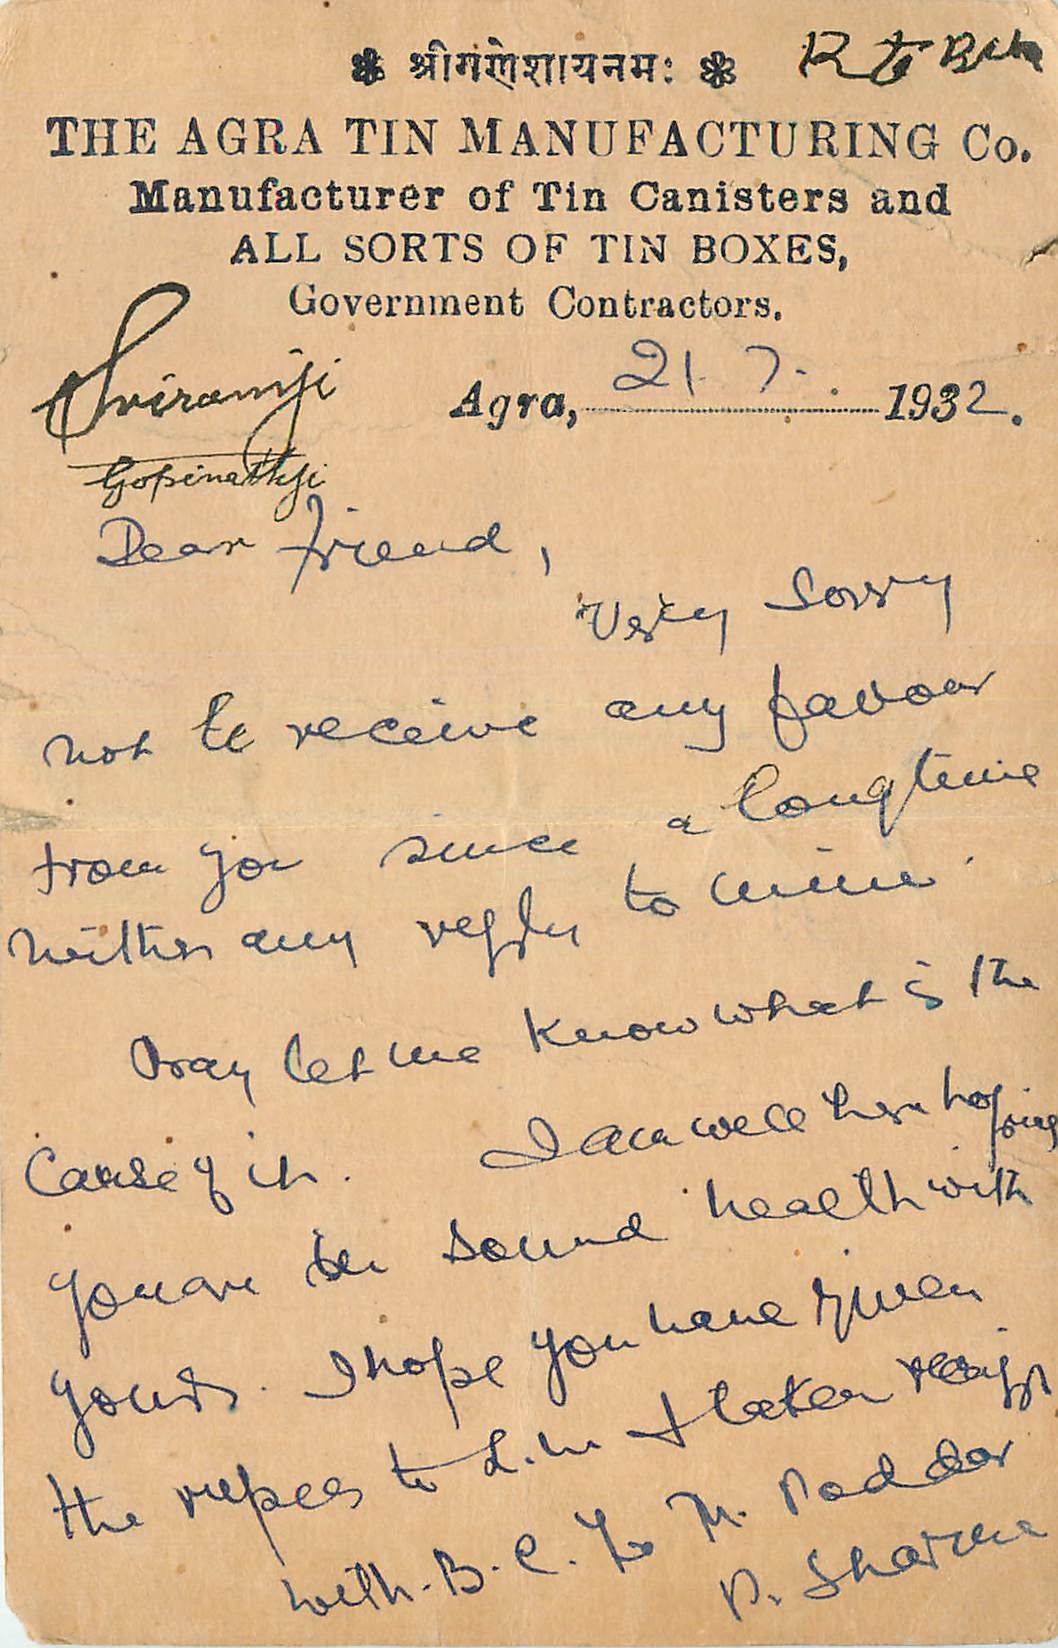 ❋ श्रीगणेशायनमः ❋
R to
THE AGRA TIN MANUFACTURING Co.
Manufacturer of Tin Canisters and
ALL SORTS OF TIN BOXES,
Government Contractors.
Sriramji
Gopinathji
Agra, 21. 7. 1932.
Dear friend,
Very Sorry
not to receive any favour
from you since a longtime
neither any reply to mine.
Pray let me know what is the
Cause of it. I am well here hoping
you are in sound health with
yours. I hope you have given
the rupees to L. N. & taken receipt
with. B. C. to M. Poddar
P. Sharma